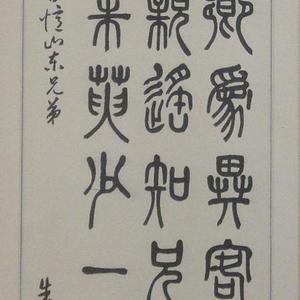 鄉爲異客
親遙知兄
茱萸少一
憶山东兄弟
朱